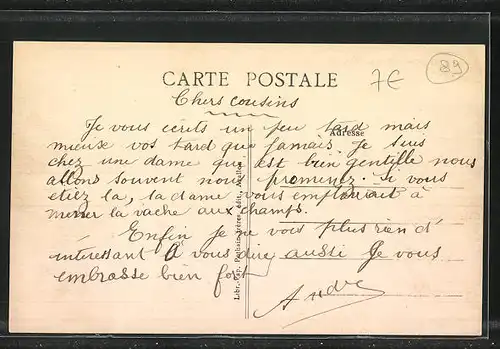 CARTE POSTALE
7€
89
Chers cousins
Adresse
Je vous écris un peu tard mais
mieux vos tard que jamais. Je suis
chez une dame qui est bien gentille nous
allons souvent nous promenez. Si vous
etiez la, la dame vous emploirait à
mener la vache aux champs.
Enfin je ne vois plus rien d'
interessant à vous dire aussi Je vous
embrasse bien fort
André